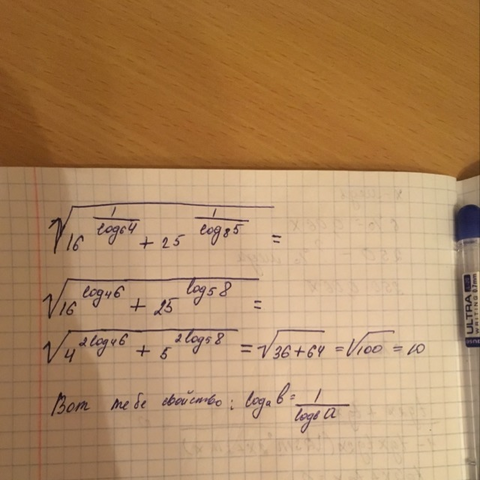 √(16^(1/log₆4) + 25^(1/log₈5)) =
√(16^(log₄6) + 25^(log₅8)) =
√(4^(2log₄6) + 5^(2log₅8)) = √(36+64) = √100 = 10
Вот тебе свойство: logₐb = 1/log_b a
ULTRA